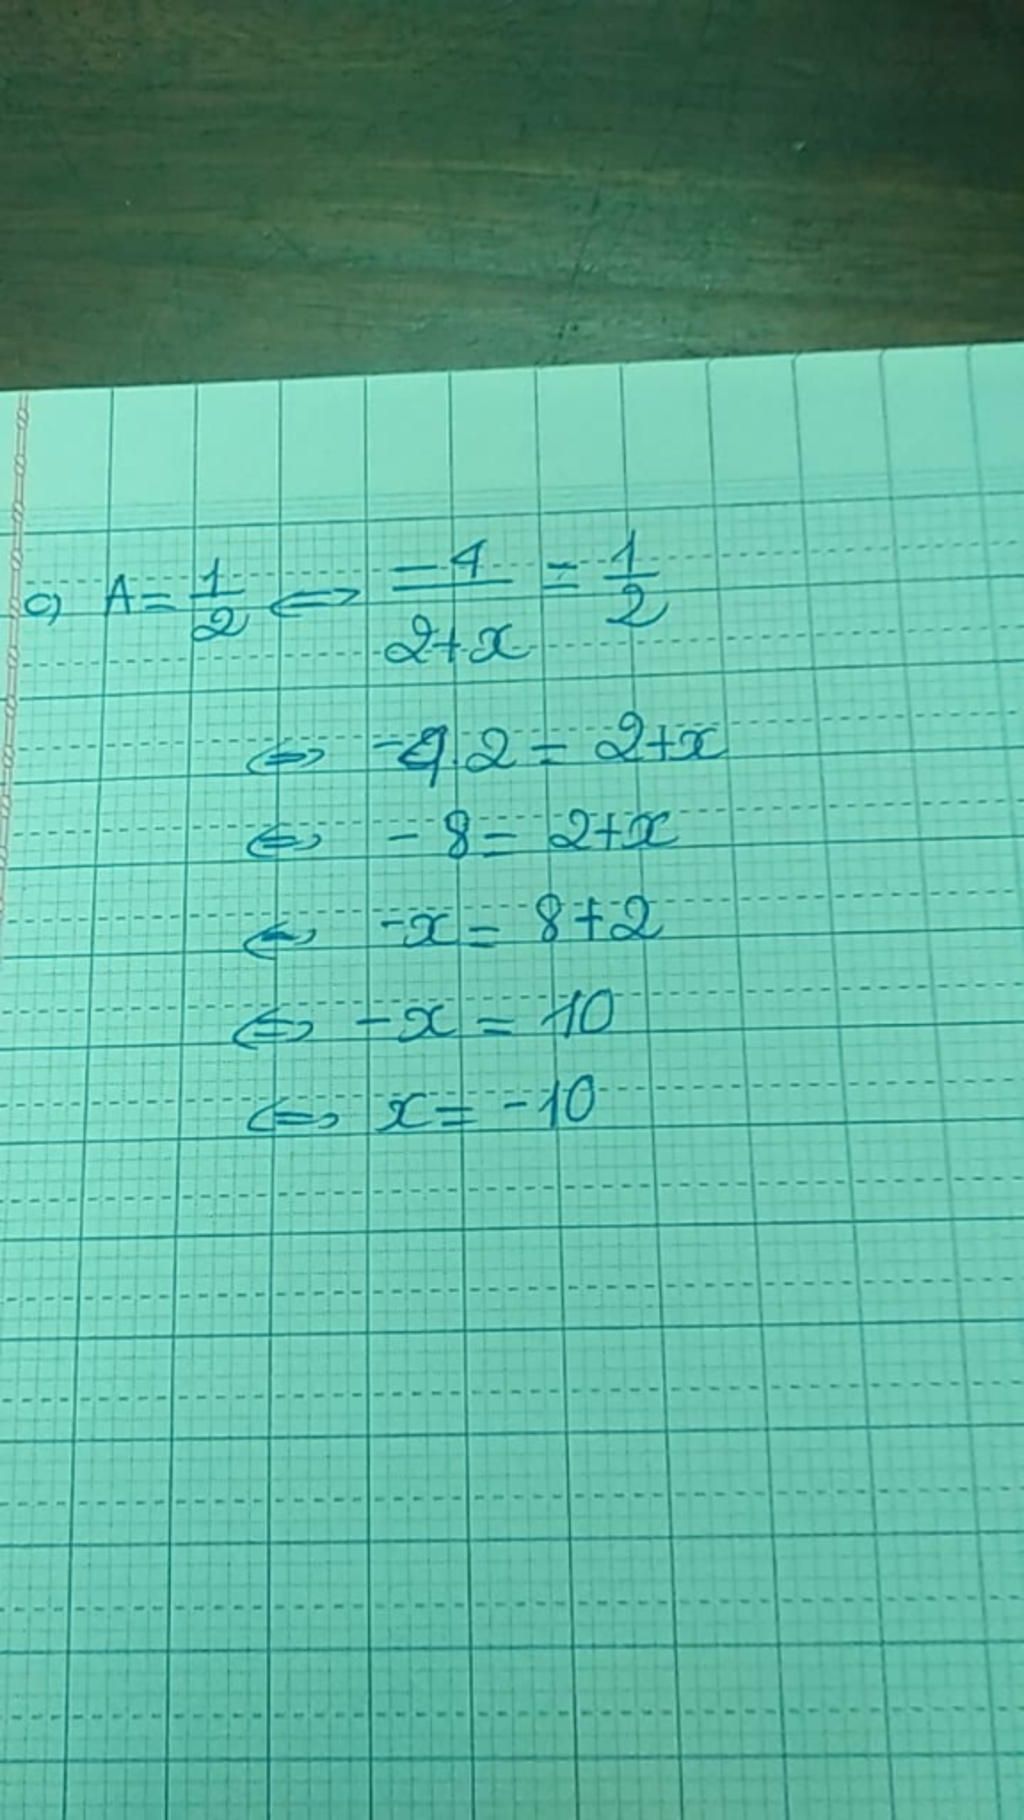 c) A = 1/2 <=> -4/(2+x) = 1/2
<=> -4.2 = 2+x
<=> -8 = 2+x
<=> -x = 8+2
<=> -x = 10
<=> x = -10